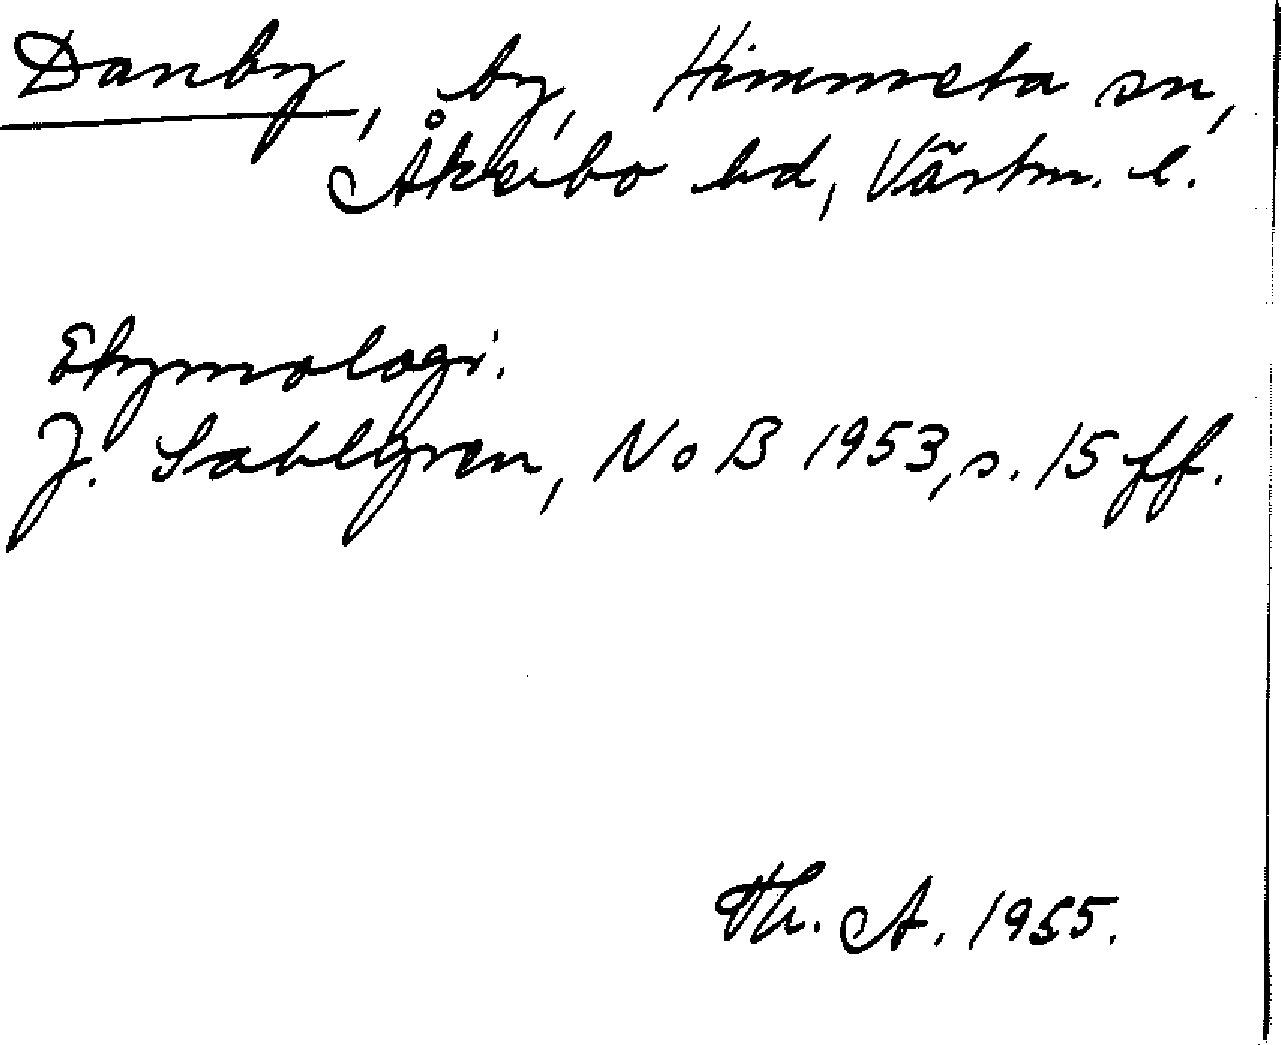 Danby, by, Himmeta sn,
Åkerbo hd, Västm. l.
Etymologi.
J. Sahlgren, NoB 1953, s. 15 ff.
Th. A. 1955.